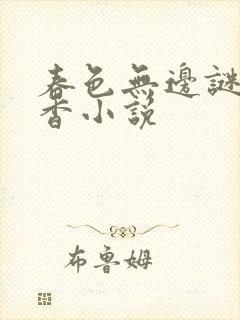 春色無邊謎
香小說
布魯姆